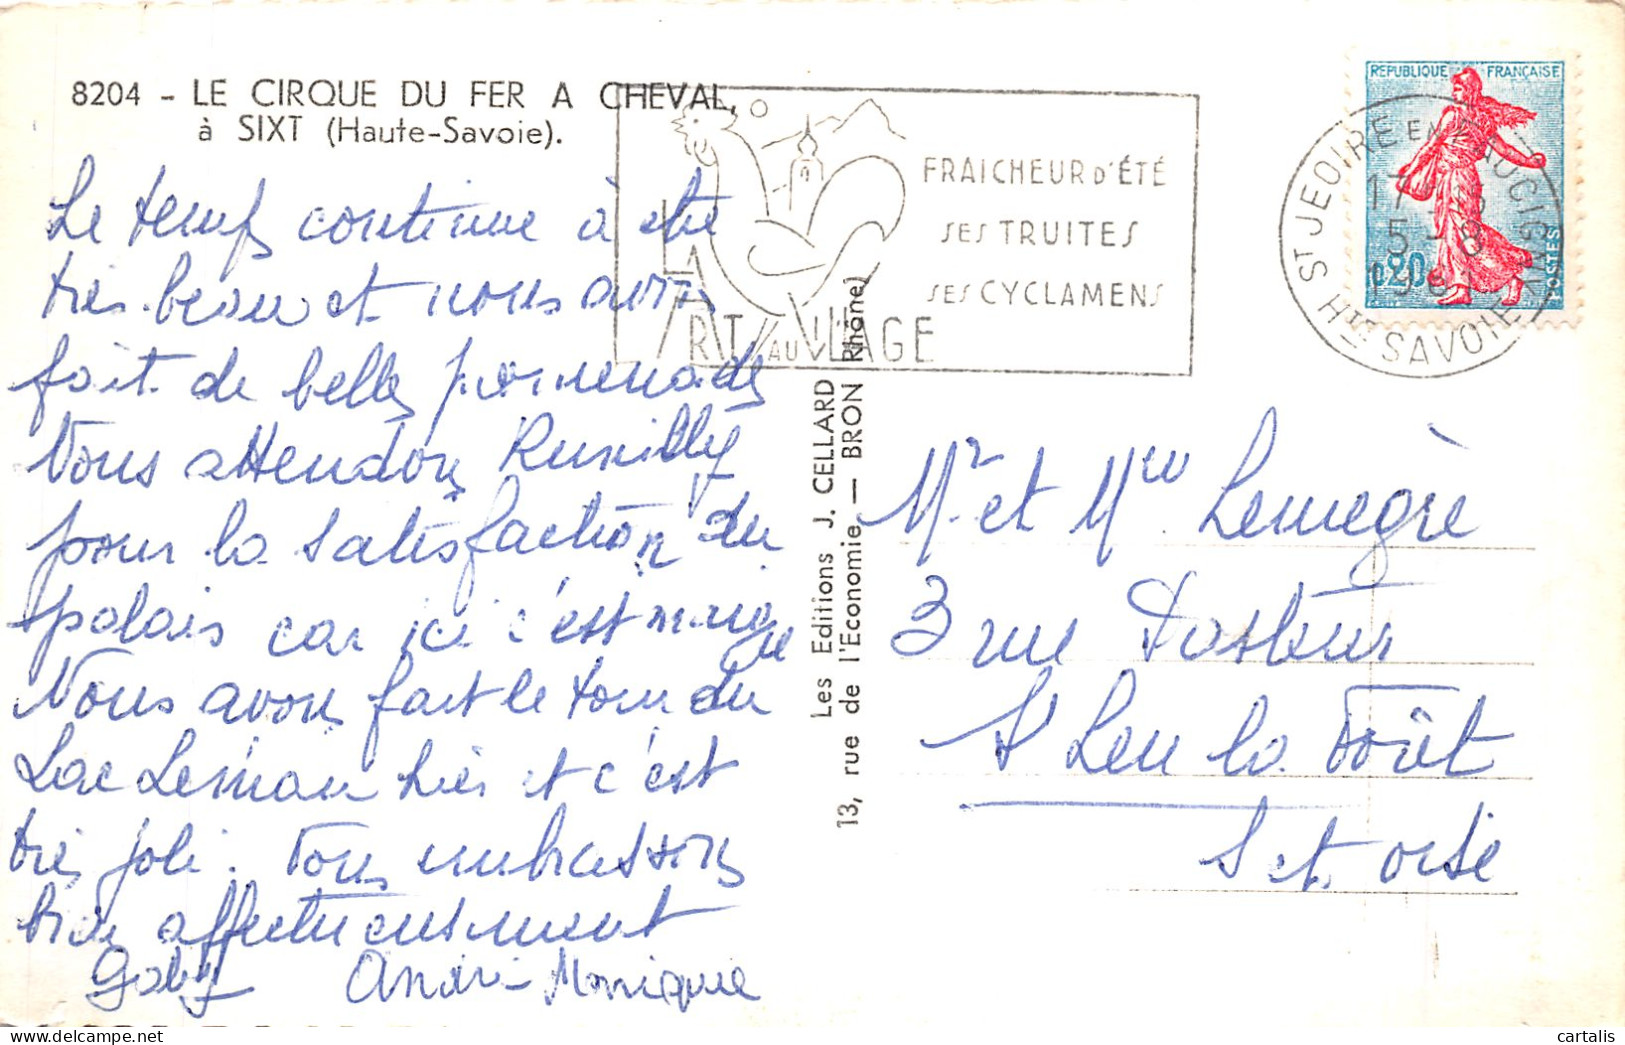 8204 - LE CIRQUE DU FER A CHEVAL,
à SIXT (Haute-Savoie).
Le temps continue à etre
très beau et nous avons
fait de belles promenades
Nous attendons Rumilly
pour la satisfaction du
palais car ici c'est
Nous avons fait le tour du
Lac Leman hier et c'est
très joli. Vous embrassons
bien affectueusement
Gaby André Monique
LA
ART AU VILLAGE
FRAICHEUR D'ÉTÉ
SES TRUITES
SES CYCLAMENS
REPUBLIQUE FRANÇAISE
0,20
POSTES
ST JEOIRE EN FAUCIGNY
17
5-8
HTE SAVOIE
Les Editions J. CELLARD
13, rue de l'Economie — BRON Rhône)
Mr et Mme Lemegre
3 rue Pasteur
St Leu la Forêt
S et oise
cartalis